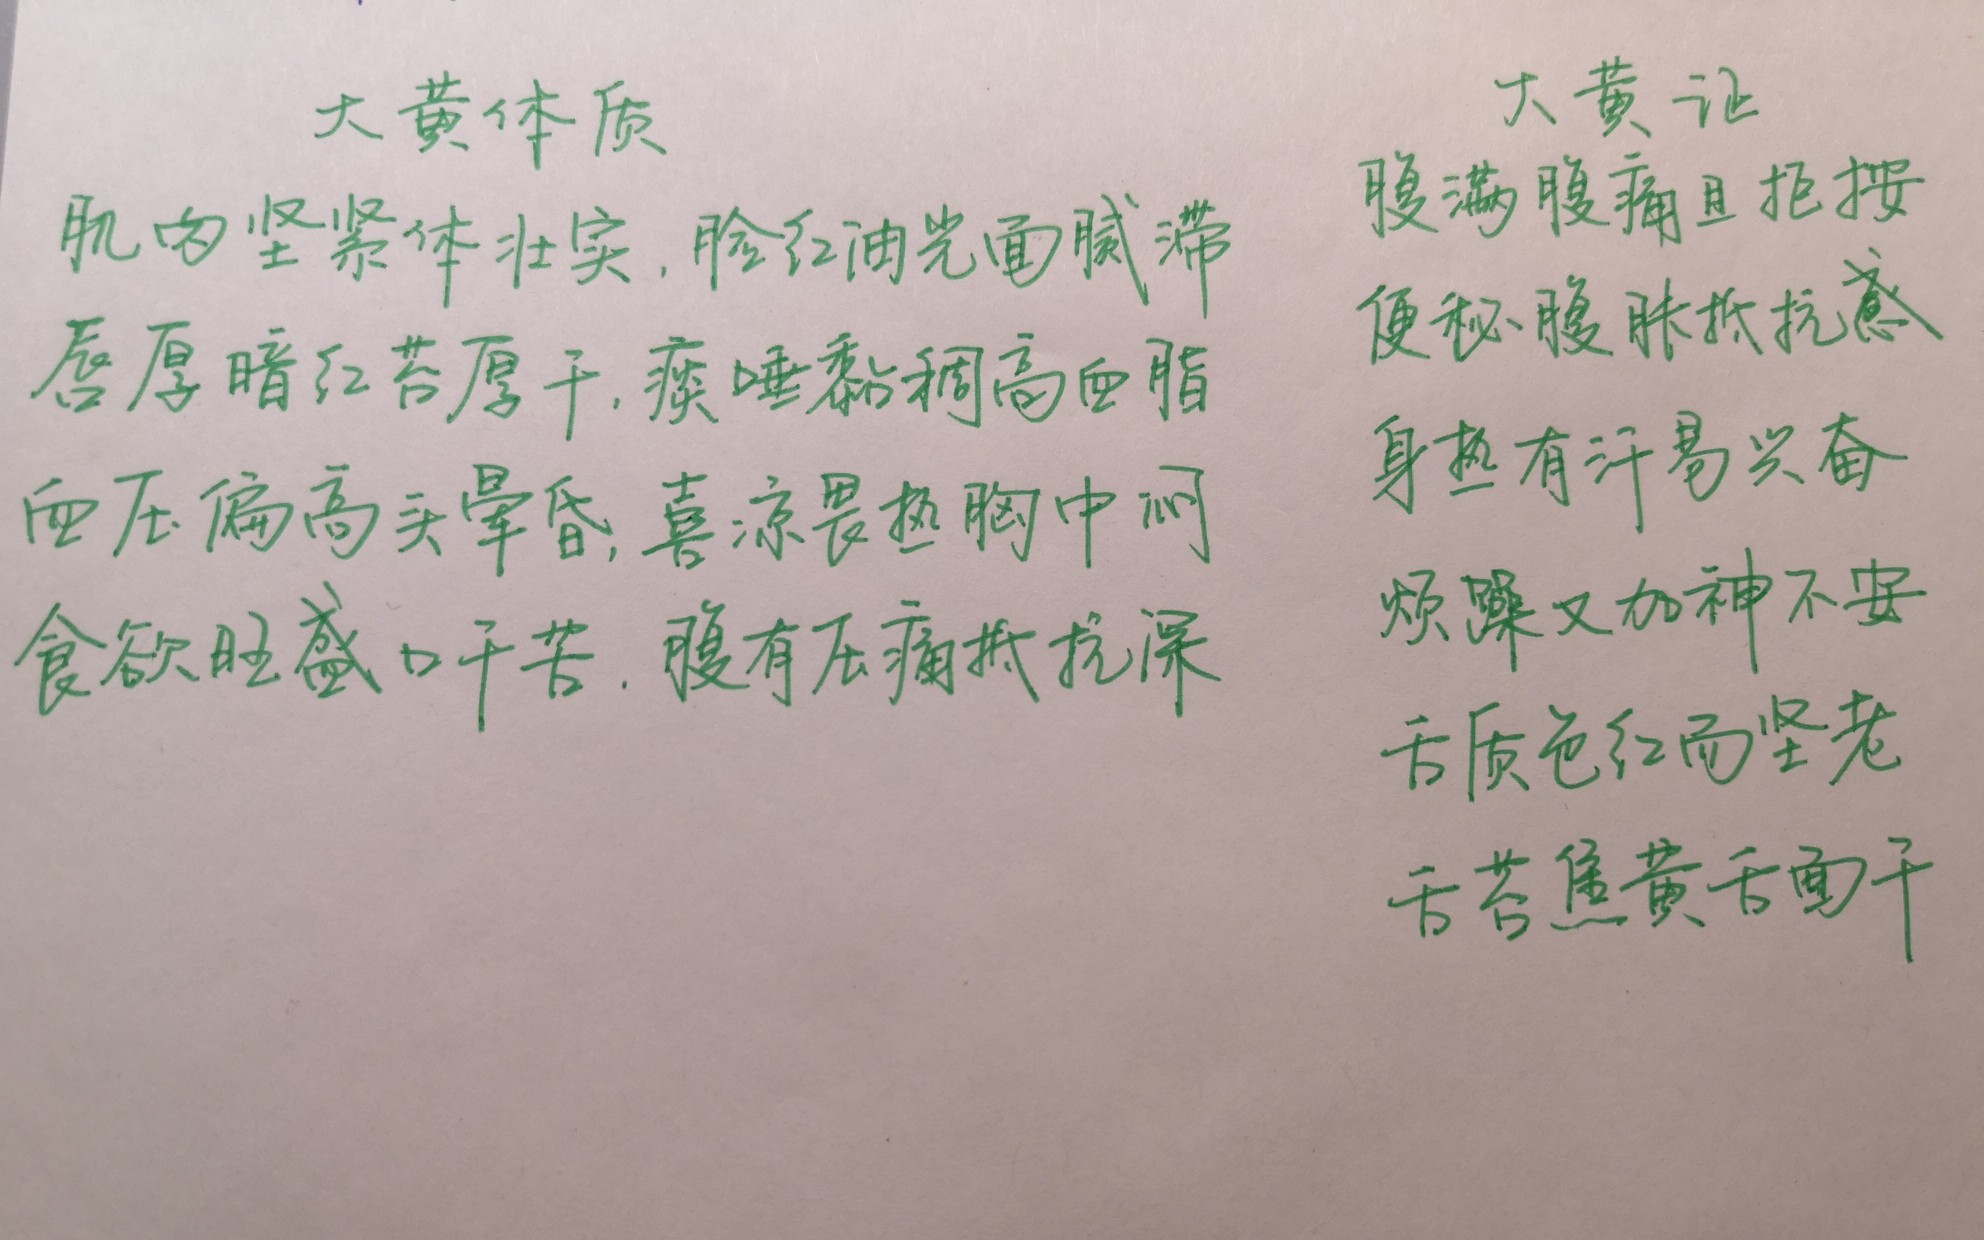 大黄体质
肌肉坚紧体壮实，脸红油光面腻滞
唇厚暗红苔厚干，痰唾黏稠高血脂
血压偏高头晕昏，喜凉畏热胸中闷
食欲旺盛口干苦．腹有压痛抵抗深
大黄证
腹满腹痛且拒按
便秘腹胀抵抗感
身热有汗易兴奋
烦躁又加神不安
舌质色红而坚老
舌苔焦黄舌面干